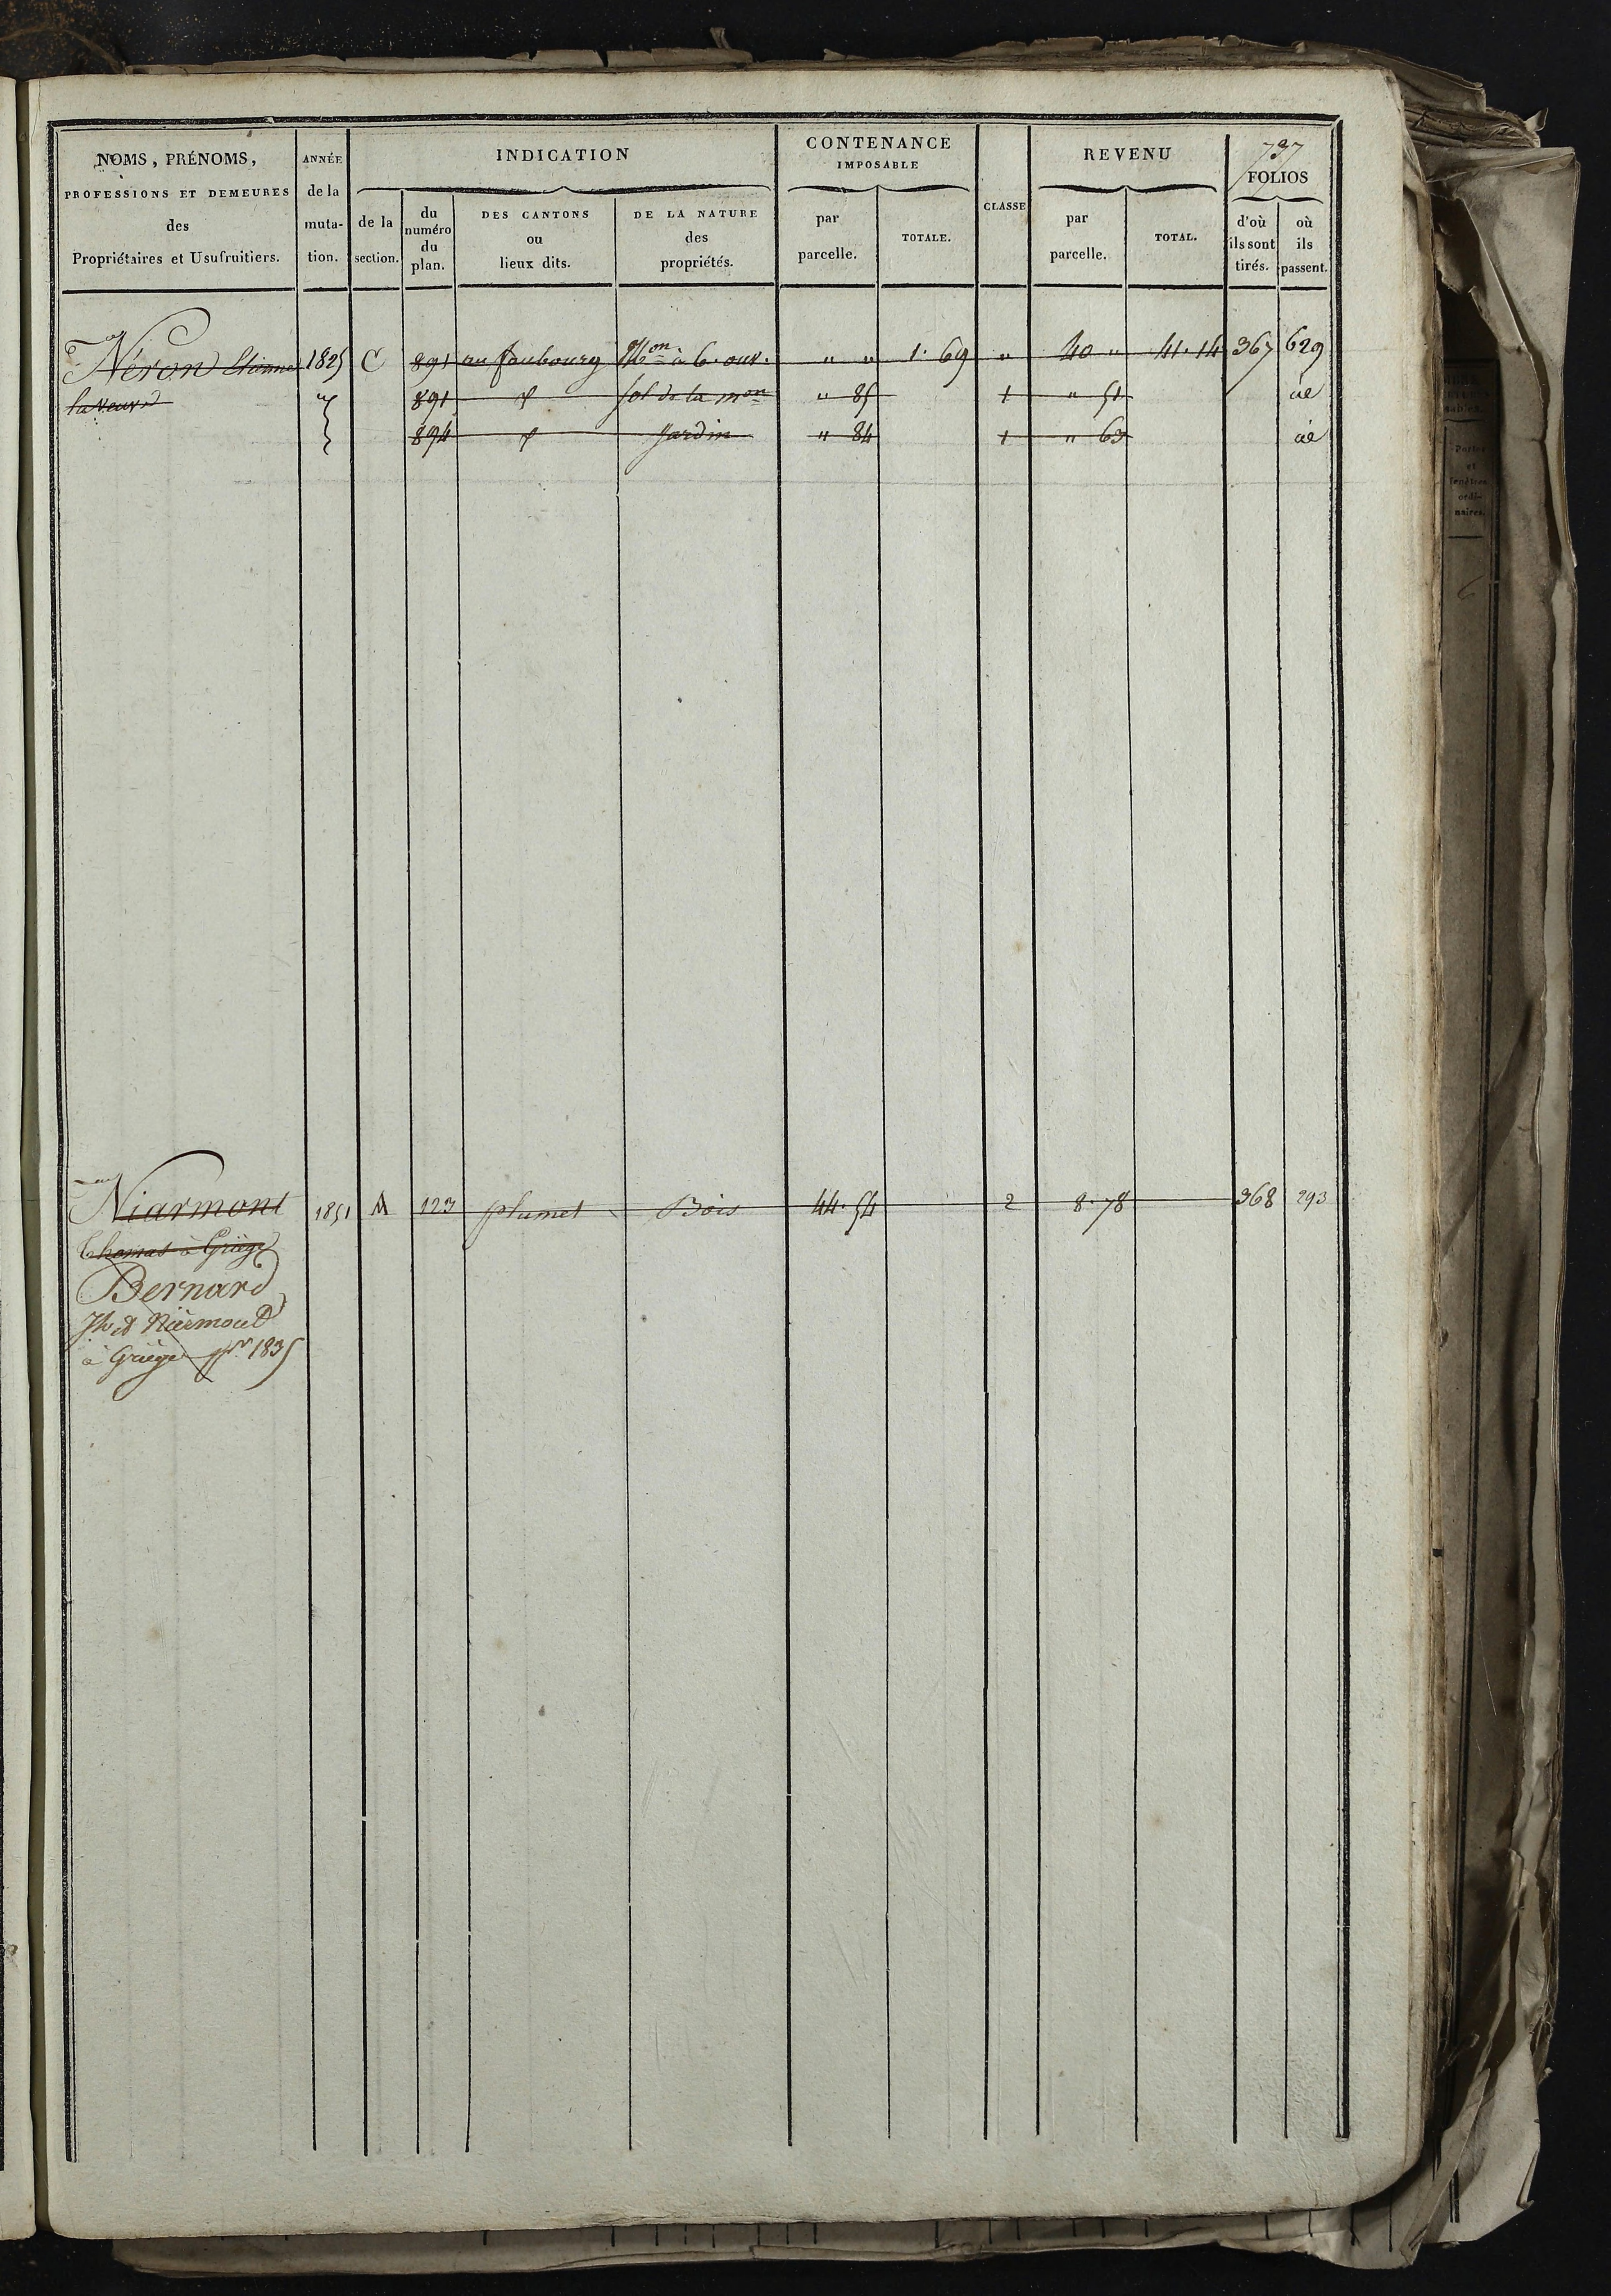 NOMS, PRÉNOMS,
PROFESSIONS ET DEMEURES
des
Propriétaires et Usufruitiers.
ANNÉE
de la
muta-
tion.
INDICATION
de la
section.
du
numéro
du
plan.
DES CANTONS
ou
lieux dits.
DE LA NATURE
des
propriétés.
CONTENANCE
IMPOSABLE
par
parcelle.
TOTALE.
CLASSE
REVENU
par
parcelle.
TOTAL.
737
FOLIOS
d'où
ils sont
tirés.
où
ils
passent.
Néron Etienne 1825 C 891 au faubourg Mon à 6. ouv. " " 1. 69 " 40 " 41. 14 367 629
la veuve 891 sol de la mon " 85 1 " 51
894 Jardin " 84 1 " 63
Niarmont 1851 A 123 plumet Bois 44. 54 2 8. 78 368 293
Thomas à Griège
Bernard
à Griège pr 1835
Portes
et
fenêtres
ordi-
naires.